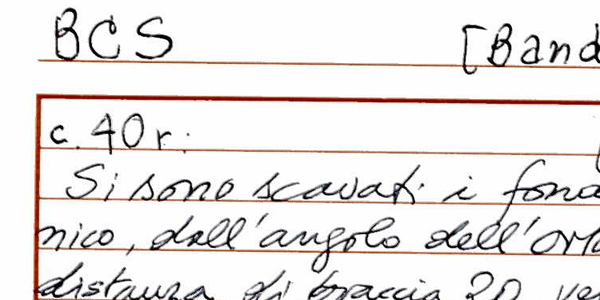 BCS [Band
c. 40r.
Si sono scavati i fond
nico, dall'angolo dell'orto
distanza di braccia 20 ve